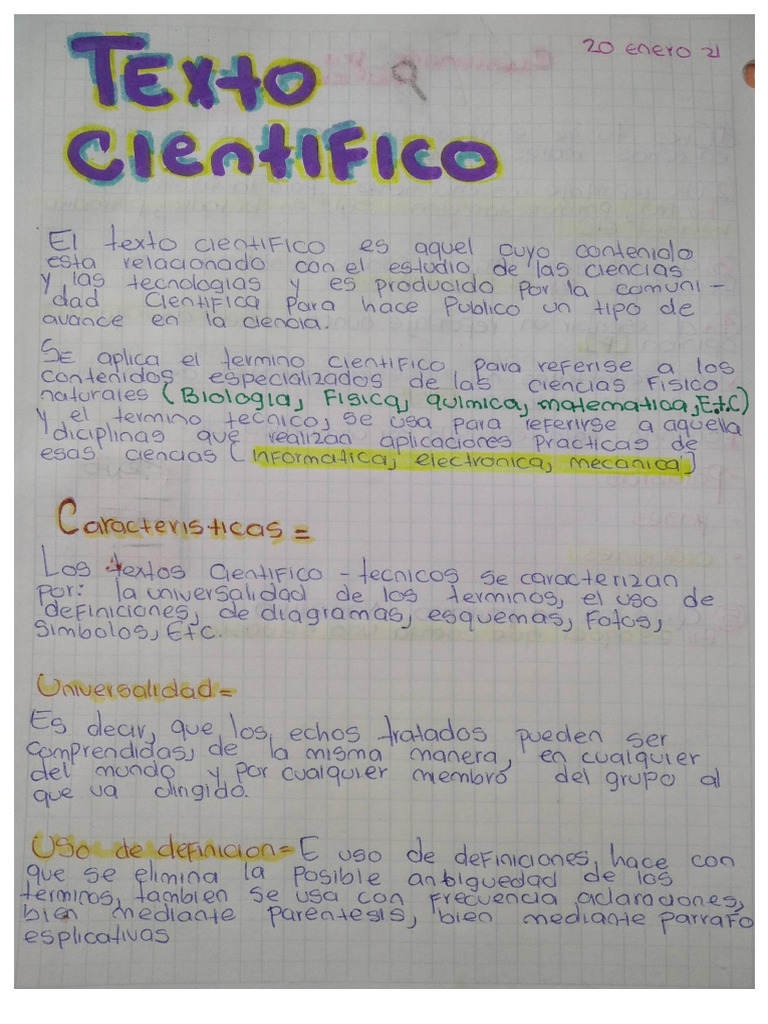 20 enero 21
TEXTO
CIENTIFICO
El texto cientifico es aquel cuyo contenido
esta relacionado con el estudio de las ciencias
y las tecnologias y es producido por la comuni-
dad cientifica para hace publico un tipo de
avance en la ciencia.
Se aplica el termino cientifico para referise a los
contenidos especializados de las ciencias fisico
naturales (Biologia, Fisica, quimica, matematica, E.t.c)
y el termino tecnico, se usa para referirse a aquella
diciplinas que realizan aplicaciones practicas de
esas ciencias (informatica, electronica, mecanica)
Caracteristicas=
Los textos cientifico-tecnicos se caracterizan
por: la universalidad de los terminos, el uso de
definiciones, de diagramas, esquemas, fotos,
simbolos, Etc.
Universalidad=
Es decir, que los echos tratados pueden ser
comprendidas, de la misma manera, en cualquier
del mundo y por cualquier miembro del grupo al
que va dingido.
Uso de definicion= E uso de definiciones, hace con
que se elimina la posible anbiguedad de los
terminos, tambien se usa con frecuencia aclaraciones,
bien mediante parentesis, bien mediante parrafo
esplicativas